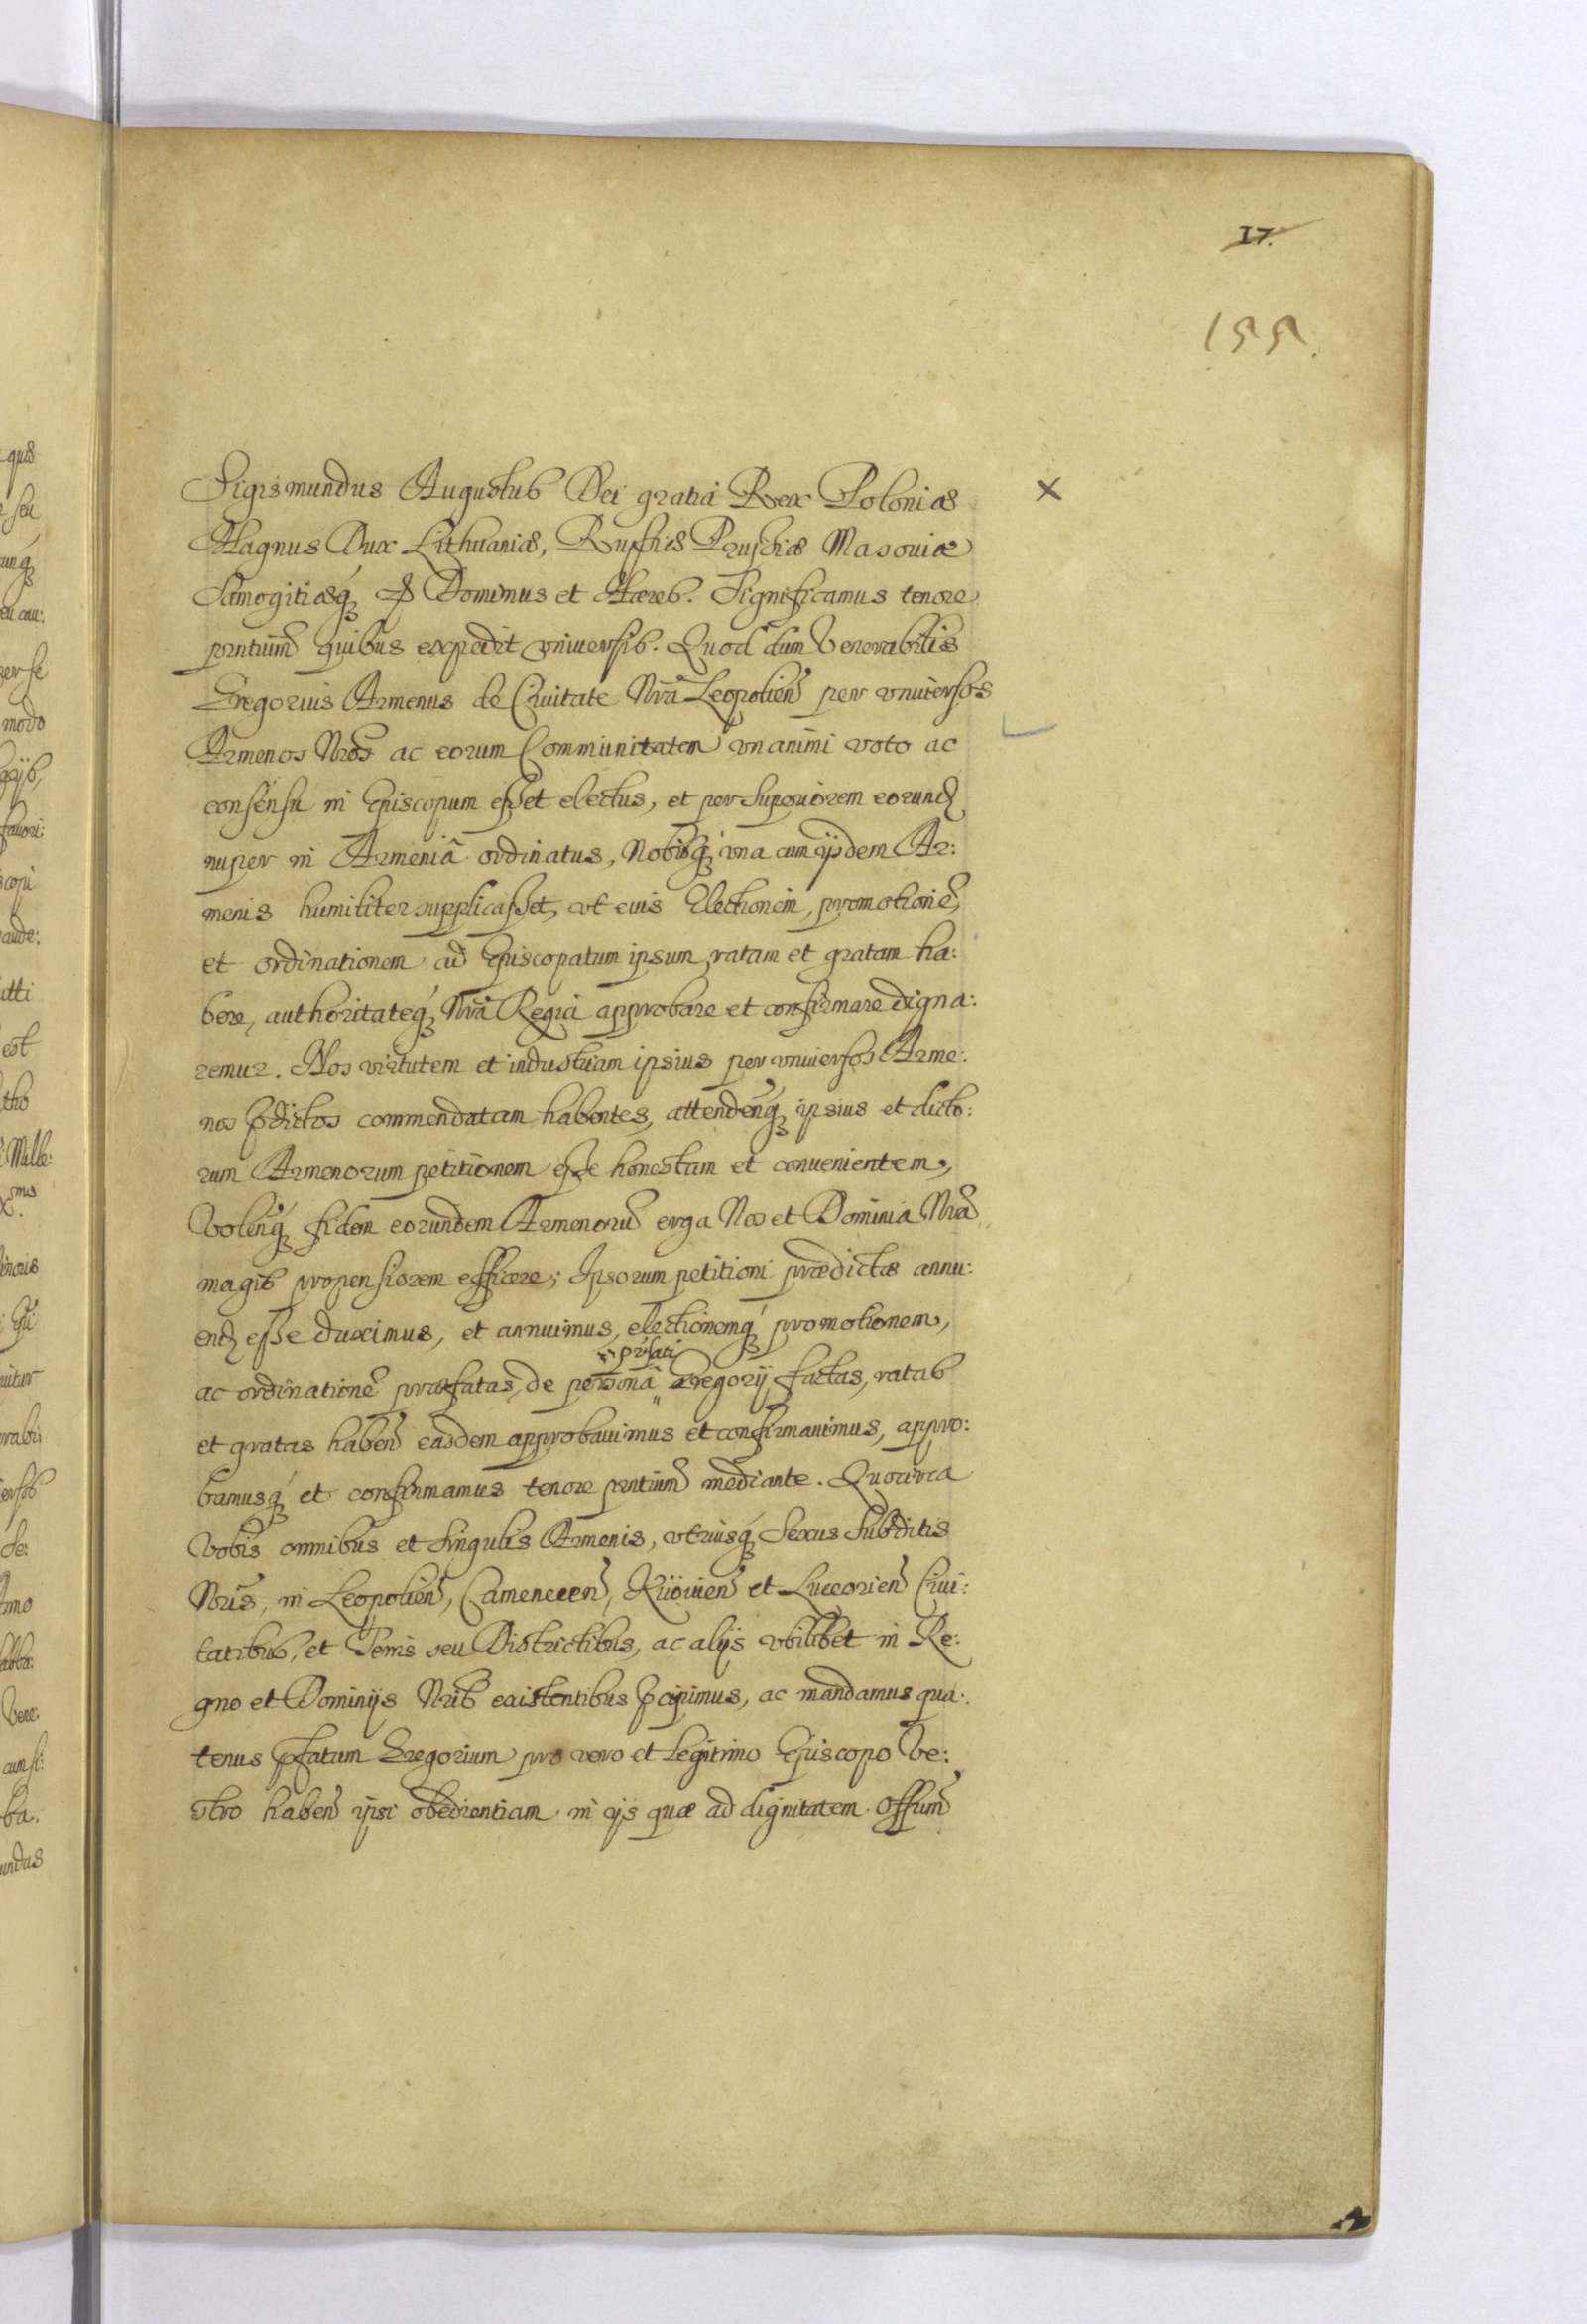 17.
155.
Sigismundus Augustus Dei gratiâ Rex Poloniæ
Magnus Dux Lithuaniæ, Russiæ Prussiæ Masouiæ
Samogitiæq́ꝫ Dominus et Hæres. Significamus tenore
pntium̃ quibus expedit vniuersis. Quod dum Venerabilis
Gregorius Armenus de Ciuitate Nrã Leopolien̄ per vniuersos
Armenos Nr̃os ac eorum Communitatem vnanimi voto ac
consensu in Episcopum esset electus, et per Superiorem eorund̨
nuper in Armeniâ ordinatus, Nobisq́ꝫ vna cum ijsdem Ar:
menis humiliter supplicasset, vt eius Electionem, promotionẽ,
et ordinationem ad Episcopatum ipsum, ratam et gratam ha:
bere, authoritateq́ꝫ Nrã Regiâ approbare et confirmare digna:
remur. Nos virtutem et industriam ipsius per vniuersos Arme:
nos p̃dictos commendatam habentes, attenden̄q́ꝫ ipsius et dicto:
rum Armenorum petitionem esse honestam et conuenientem,
Volen̄q́ꝫ fidem eorundem Armenorũ erga Nos et Dominia Nrã
magis propensiorem efficere; Ipsorum petitioni prædictæ annu:
end̨ esse duximus, et annuimus, electionemq́ꝫ promotionem,
prǽfati
ac ordinationẽ præfatas, de personâ Gregorij factas, ratas
et gratas haben̄ easdem approbauimus et confirmauimus, appro:
bamusq́ꝫ et confirmamus tenore pntium̃ mediante. Quocirca
Vobis omnibus et singulis Armenis, vtriusq́ꝫ Sexus Subditis
Nrĩs, in Leopolien̄, Camenecen̄, Kiiouien̄ et Luceorien̄ Ciui:
tatibus, et Terris seu Districtibus, ac alijs vbilibet in Re:
gno et Dominijs Nrĩs existentibus p̃cipimus, ac mandamus qua:
tenus p̃fatum Gregorium pro vero et legitimo Episcopo Ve:
stro haben̄ ipsi obedientiam in ijs quæ ad dignitatem Offium̃